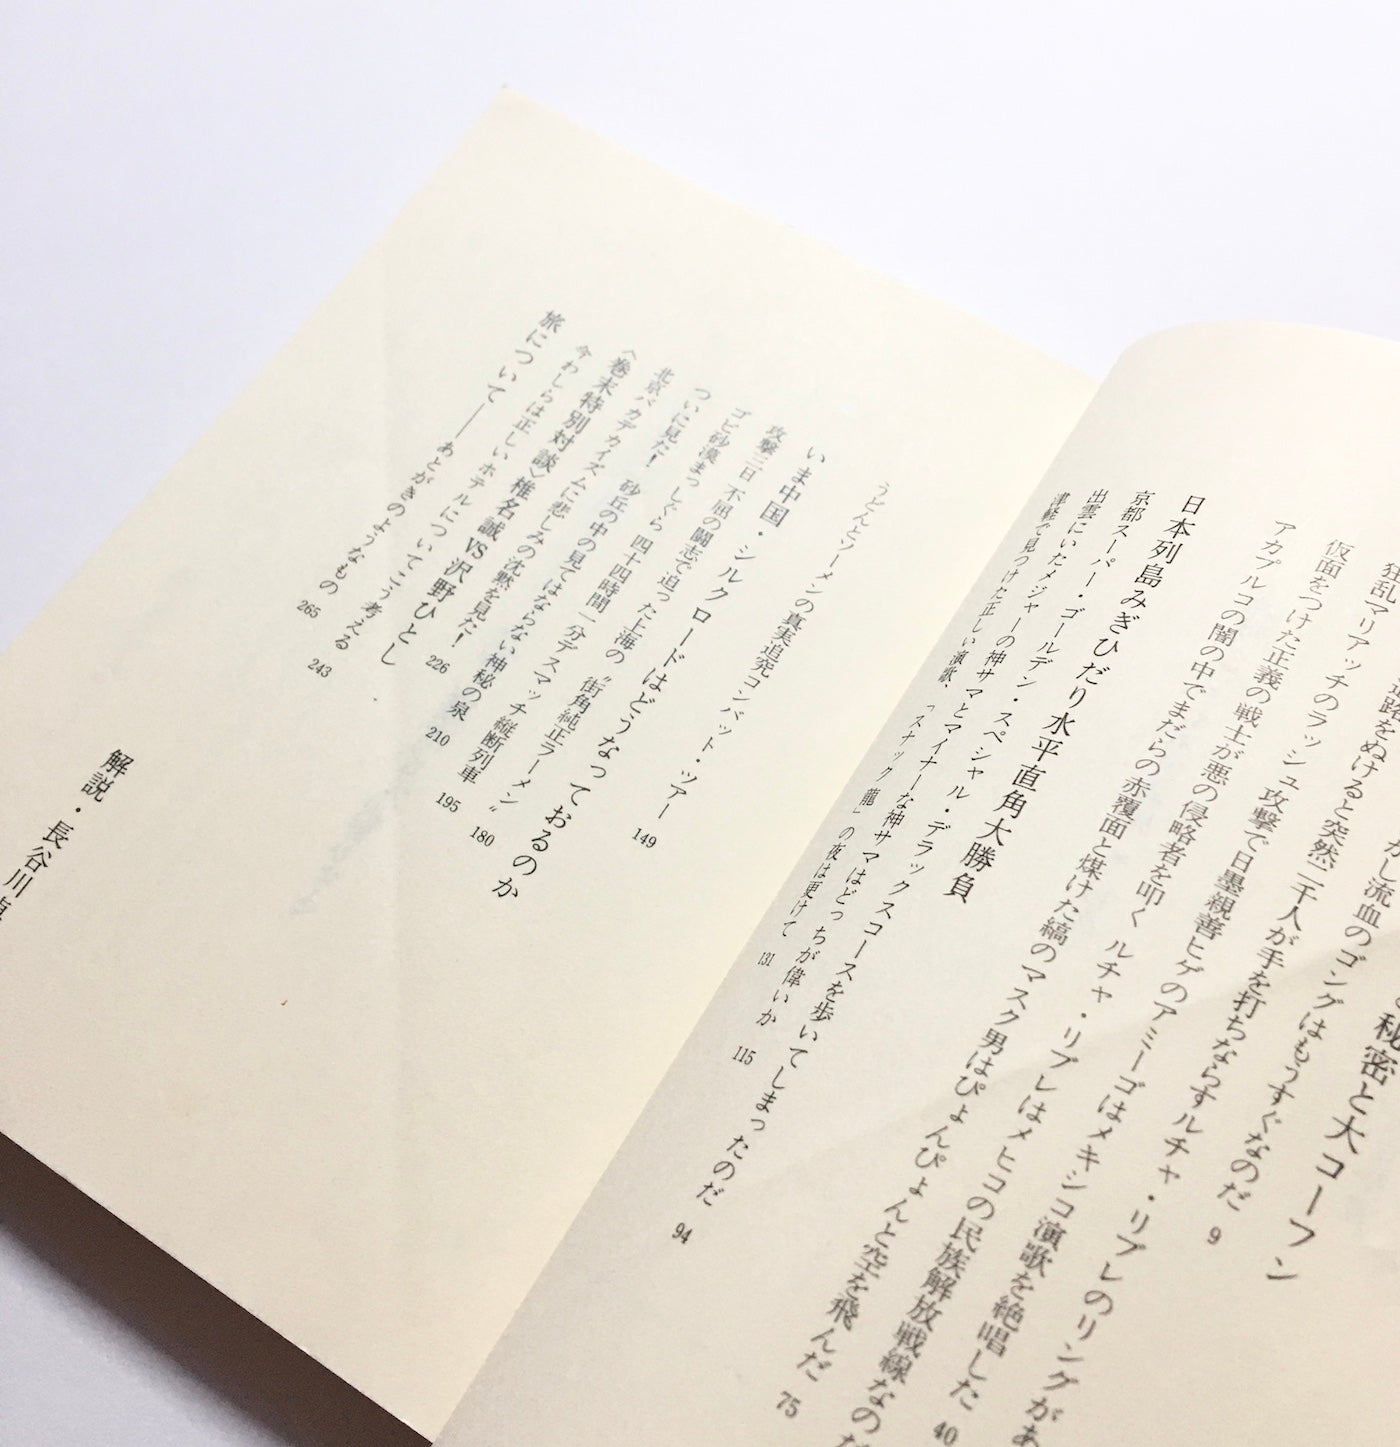 秘密と大コーフン
道路をぬけると突然二千人が手を打ちならすルチャ・リブレのリングがあ
狂乱マリアッチのラッシュ攻撃で日墨親善ヒゲのアミーゴはメキシコ演歌を絶唱した 40
仮面をつけた正義の戦士が悪の侵略者を叩く ルチャ・リブレはメヒコの民族解放戦線なのだ
アカプルコの闇の中でまだらの赤覆面と煤けた縞のマスク男はぴょんぴょんと空を飛んだ 75
かし流血のゴングはもうすぐなのだ 9
日本列島みぎひだり水平直角大勝負
京都スーパー・ゴールデン・スペシャル・デラックスコースを歩いてしまったのだ 94
出雲にいたメジャーの神サマとマイナーな神サマはどっちが偉いか 115
津軽で見つけた正しい演歌、「スナック龍」の夜は更けて 131
うどんとソーメンの真実追究コンバット・ツアー 149
いま中国・シルクロードはどうなっておるのか
攻撃三日 不屈の闘志で迫った上海の〝街角純正ラーメン〟 180
ゴビ砂漠まっしぐら 四十四時間一分デスマッチ縦断列車 195
ついに見た! 砂丘の中の見てはならない神秘の泉 210
北京バカデカイズムに悲しみの沈黙を見た! 226
〈巻末特別対談〉椎名誠VS沢野ひとし
今わしらは正しいホテルについてこう考える 243
旅について――あとがきのようなもの 265
解説・長谷川